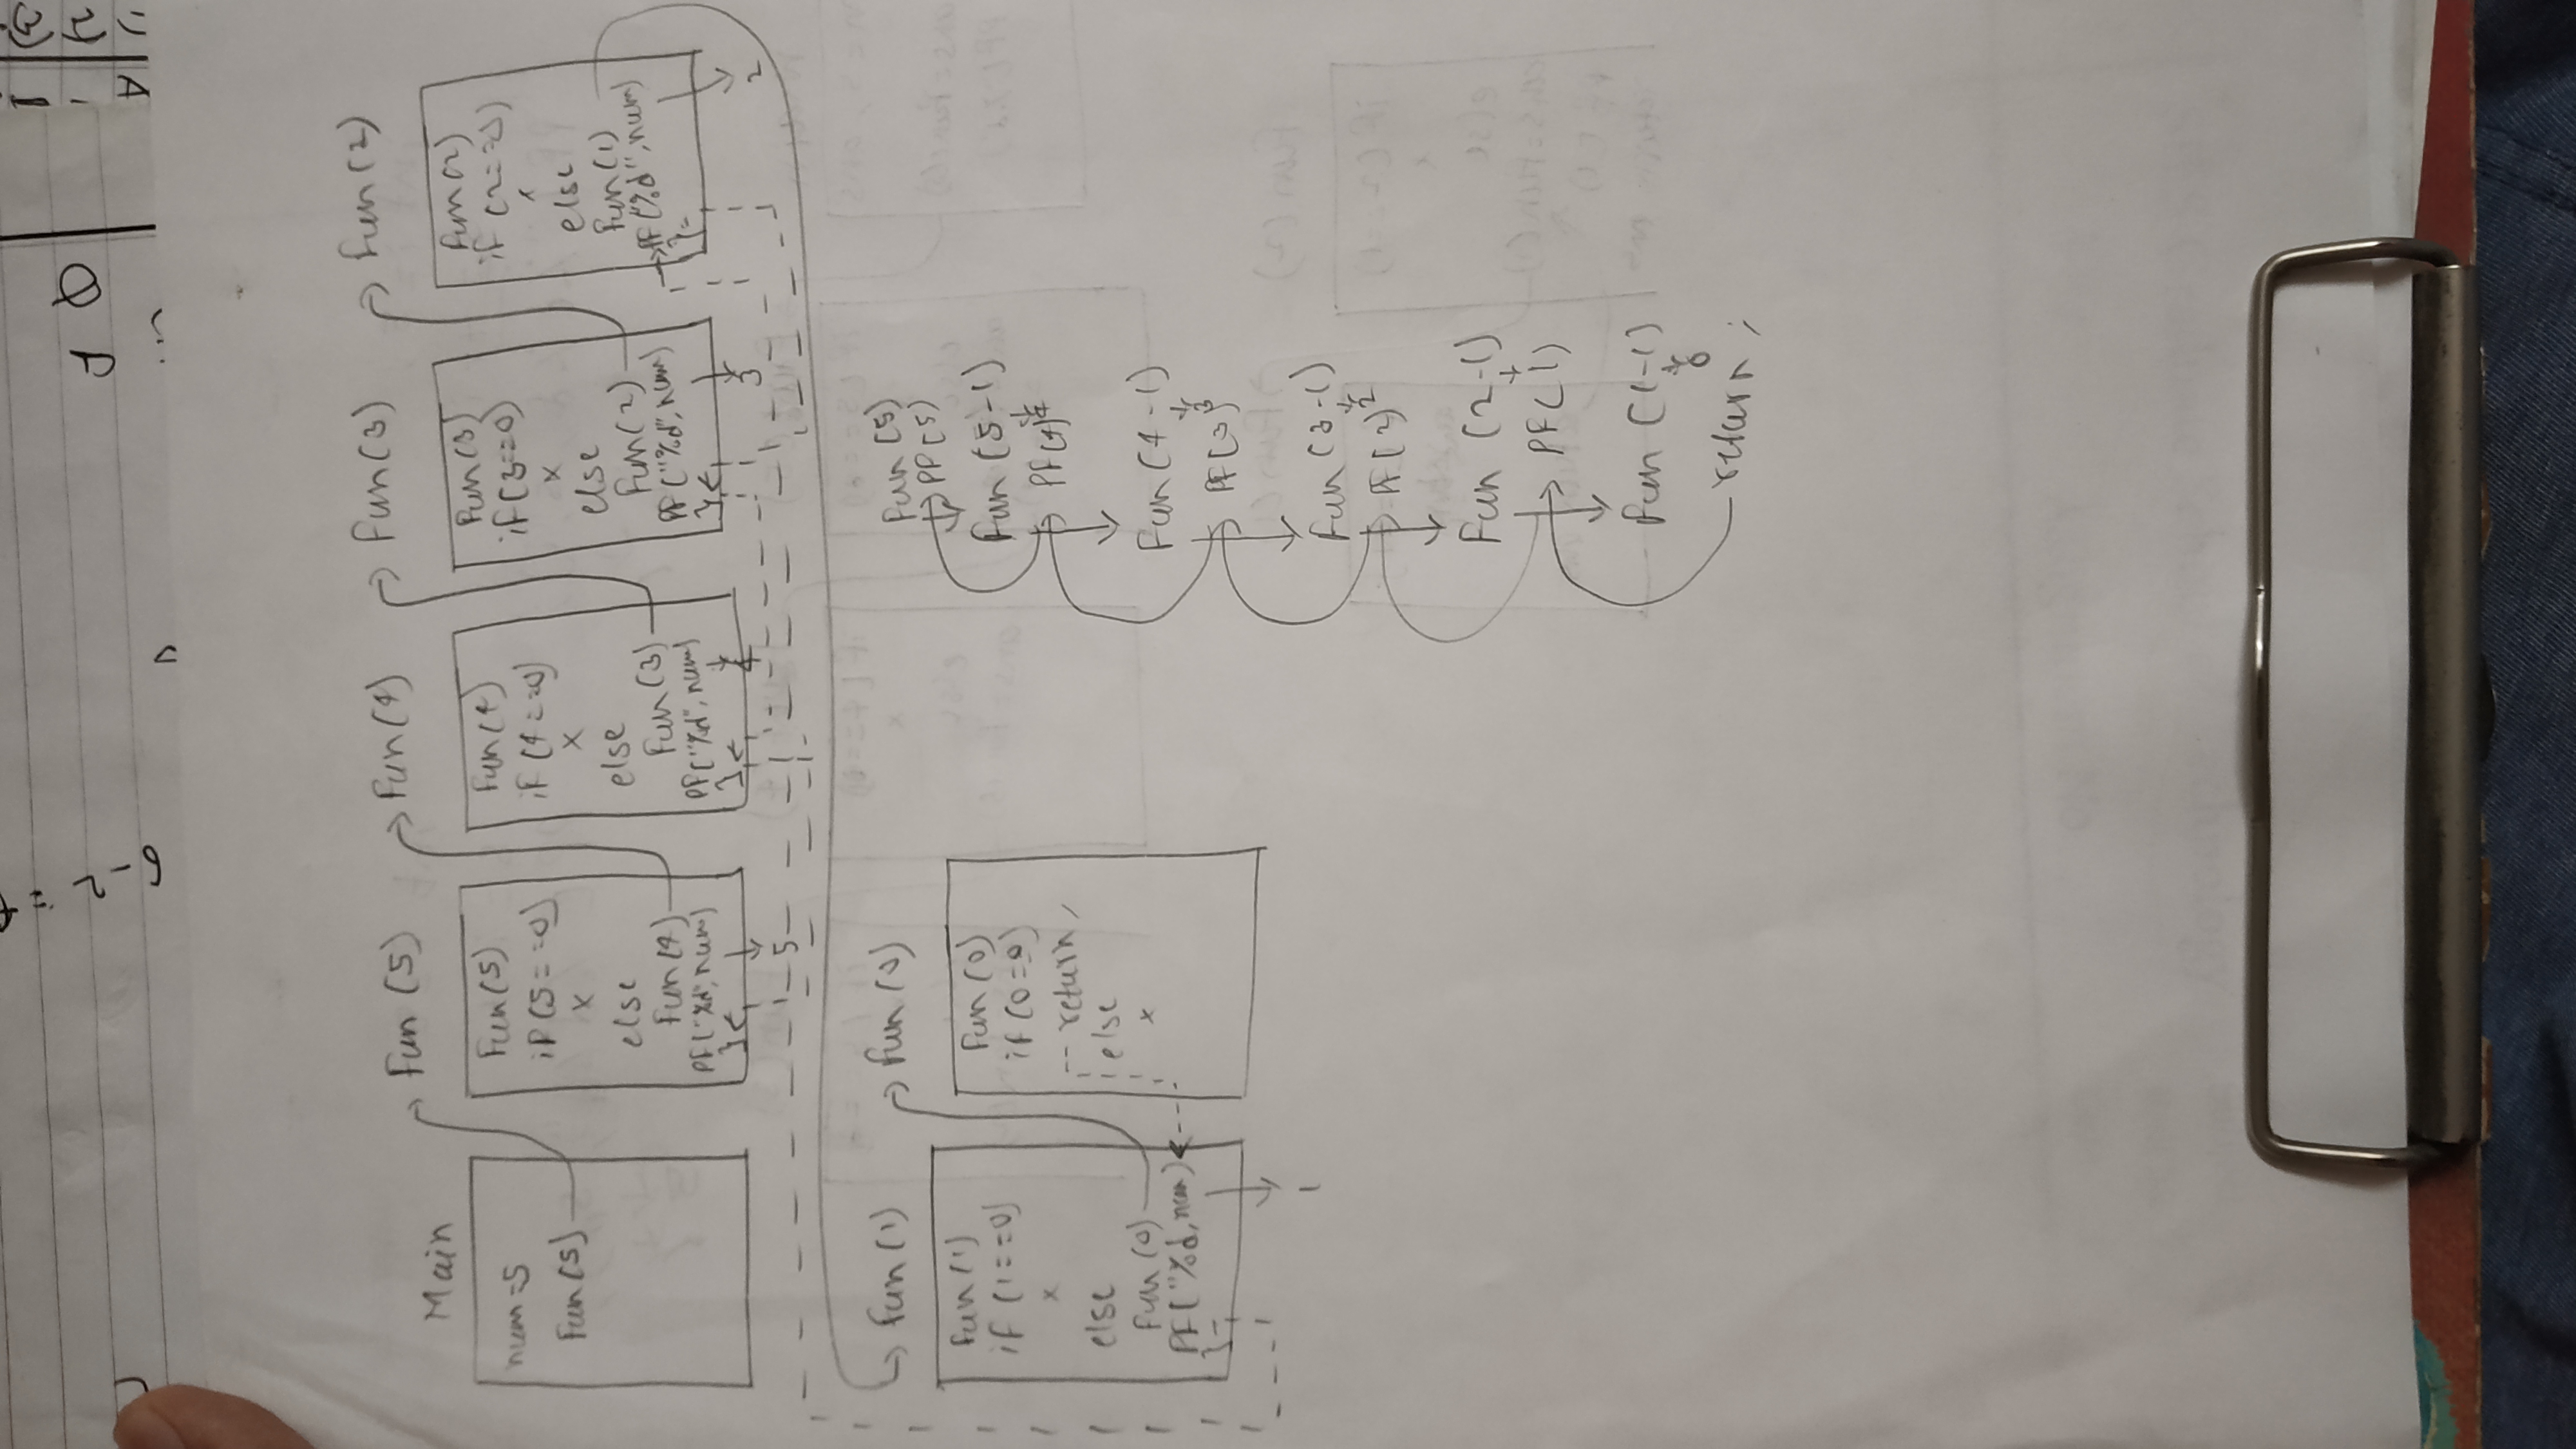 Main
num=5
Fun(5)
Fun (5)
Fun(5)
if(5==0)
x
else
Fun(4)
PF("%d",num)
}
5
Fun(4)
Fun(4)
if(4==0)
x
else
Fun(3)
PF("%d",num)
}
4
Fun(3)
Fun(3)
if(3==0)
x
else
Fun(2)
PF("%d",num)
}
3
Fun(2)
Fun(2)
if(2==0)
x
else
Fun(1)
PF("%d",num)
}
2
Fun(1)
Fun(1)
if(1==0)
x
else
Fun(0)
PF("%d,num)
}
1
Fun(0)
Fun(0)
if(0=0)
return,
else
x
Fun(5)
PF(5)
Fun(5-1)
4
PF(4)
Fun(4-1)
3
PF(3)
Fun(3-1)
2
PF(2)
Fun (2-1)
PF(1)
Fun (1-1)
0
return ;